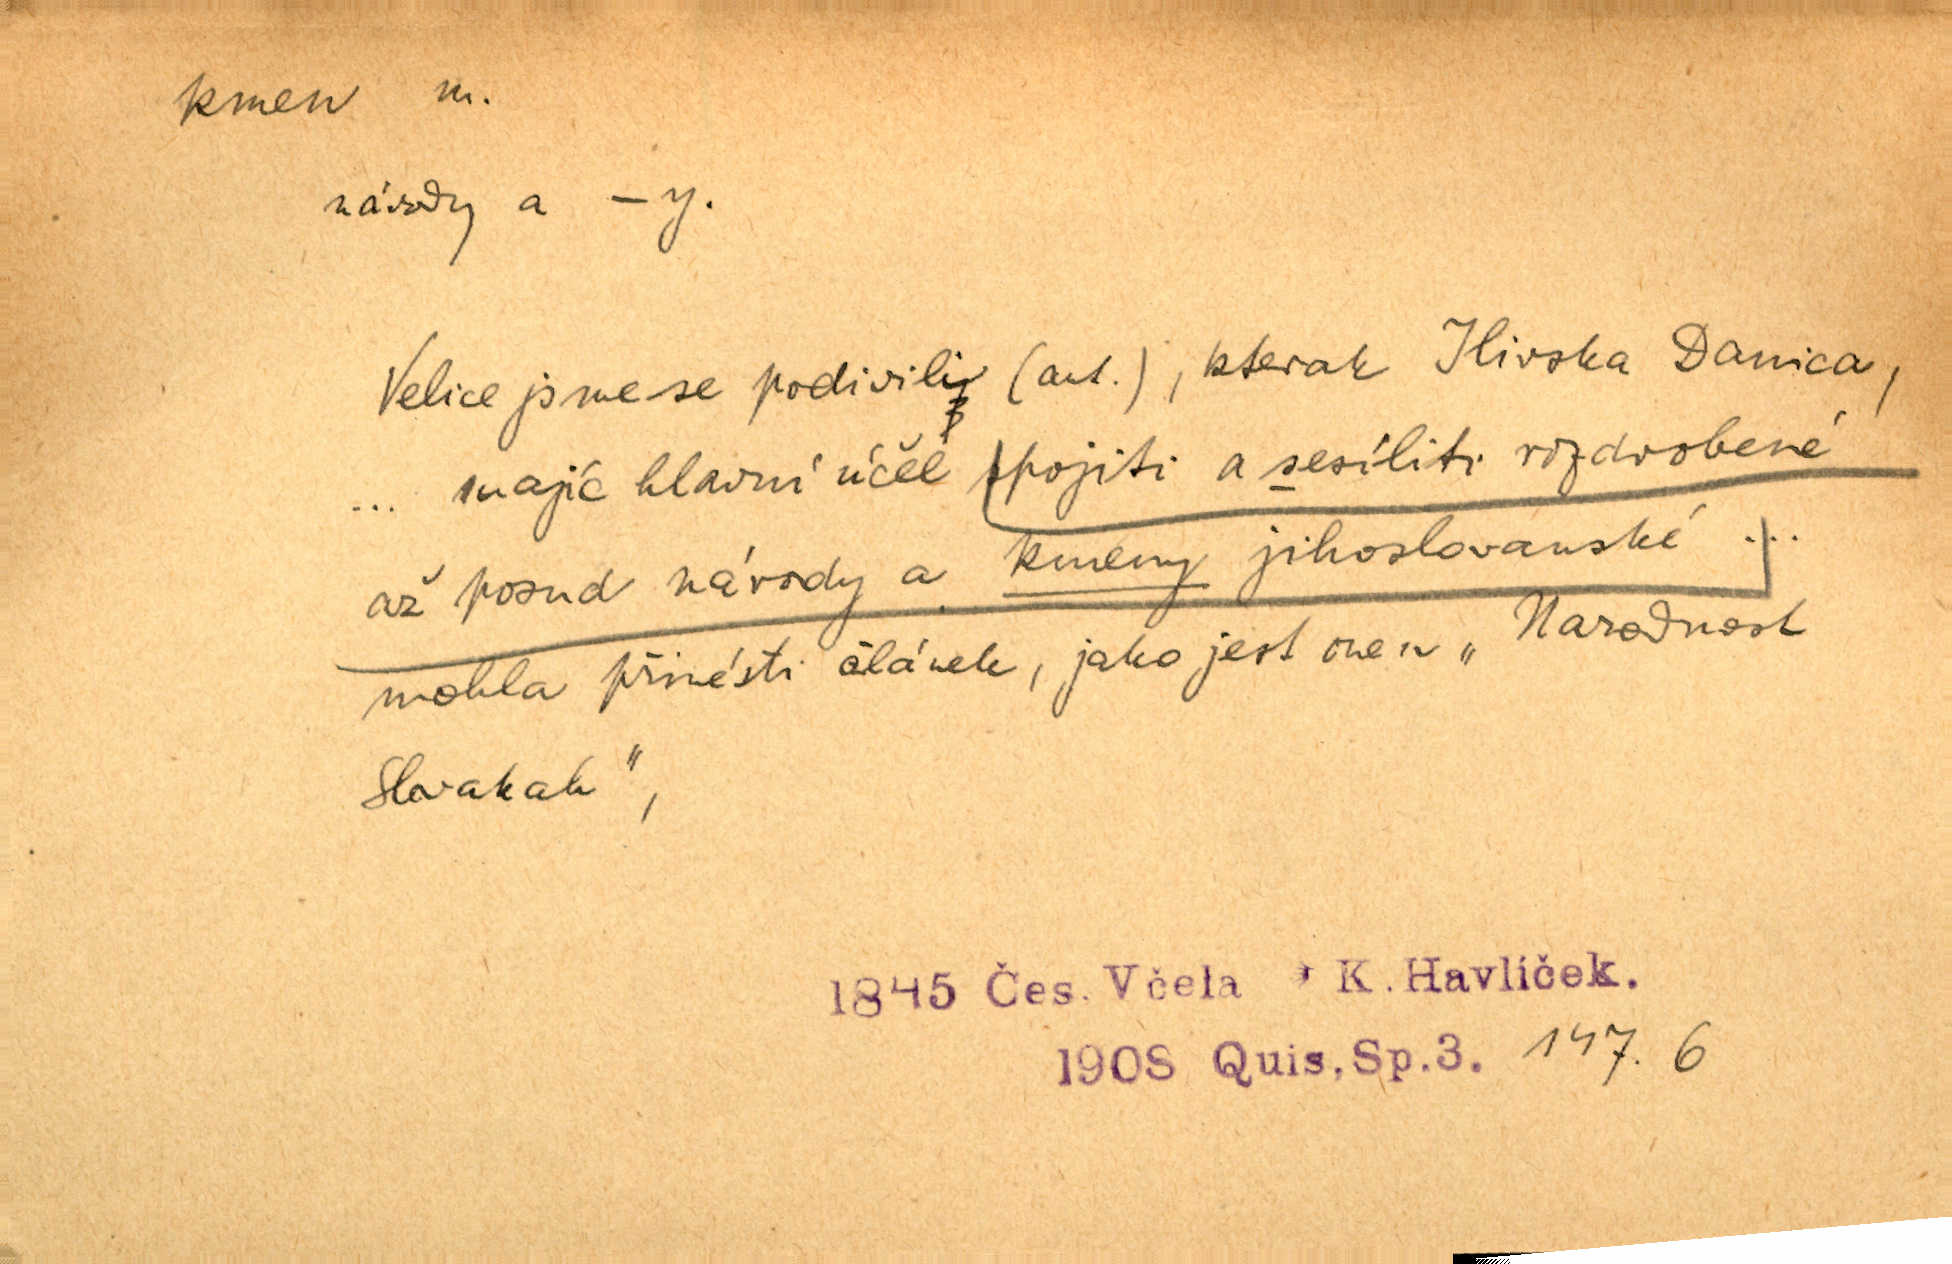 kmen m.
národy a -y.
Velice jsme se podivili (aut.), kterak Ilirska Danica,
... majíc hlavní účel spojiti a sesíliti rozdrobené
až posud národy a kmeny jihoslovanské ...
mohla přinésti článek, jako jest onen „Narodnost
Slovakah",
1845 Čes. Včela K. Havlíček.
1908 Quis, Sp.3. 147. 6